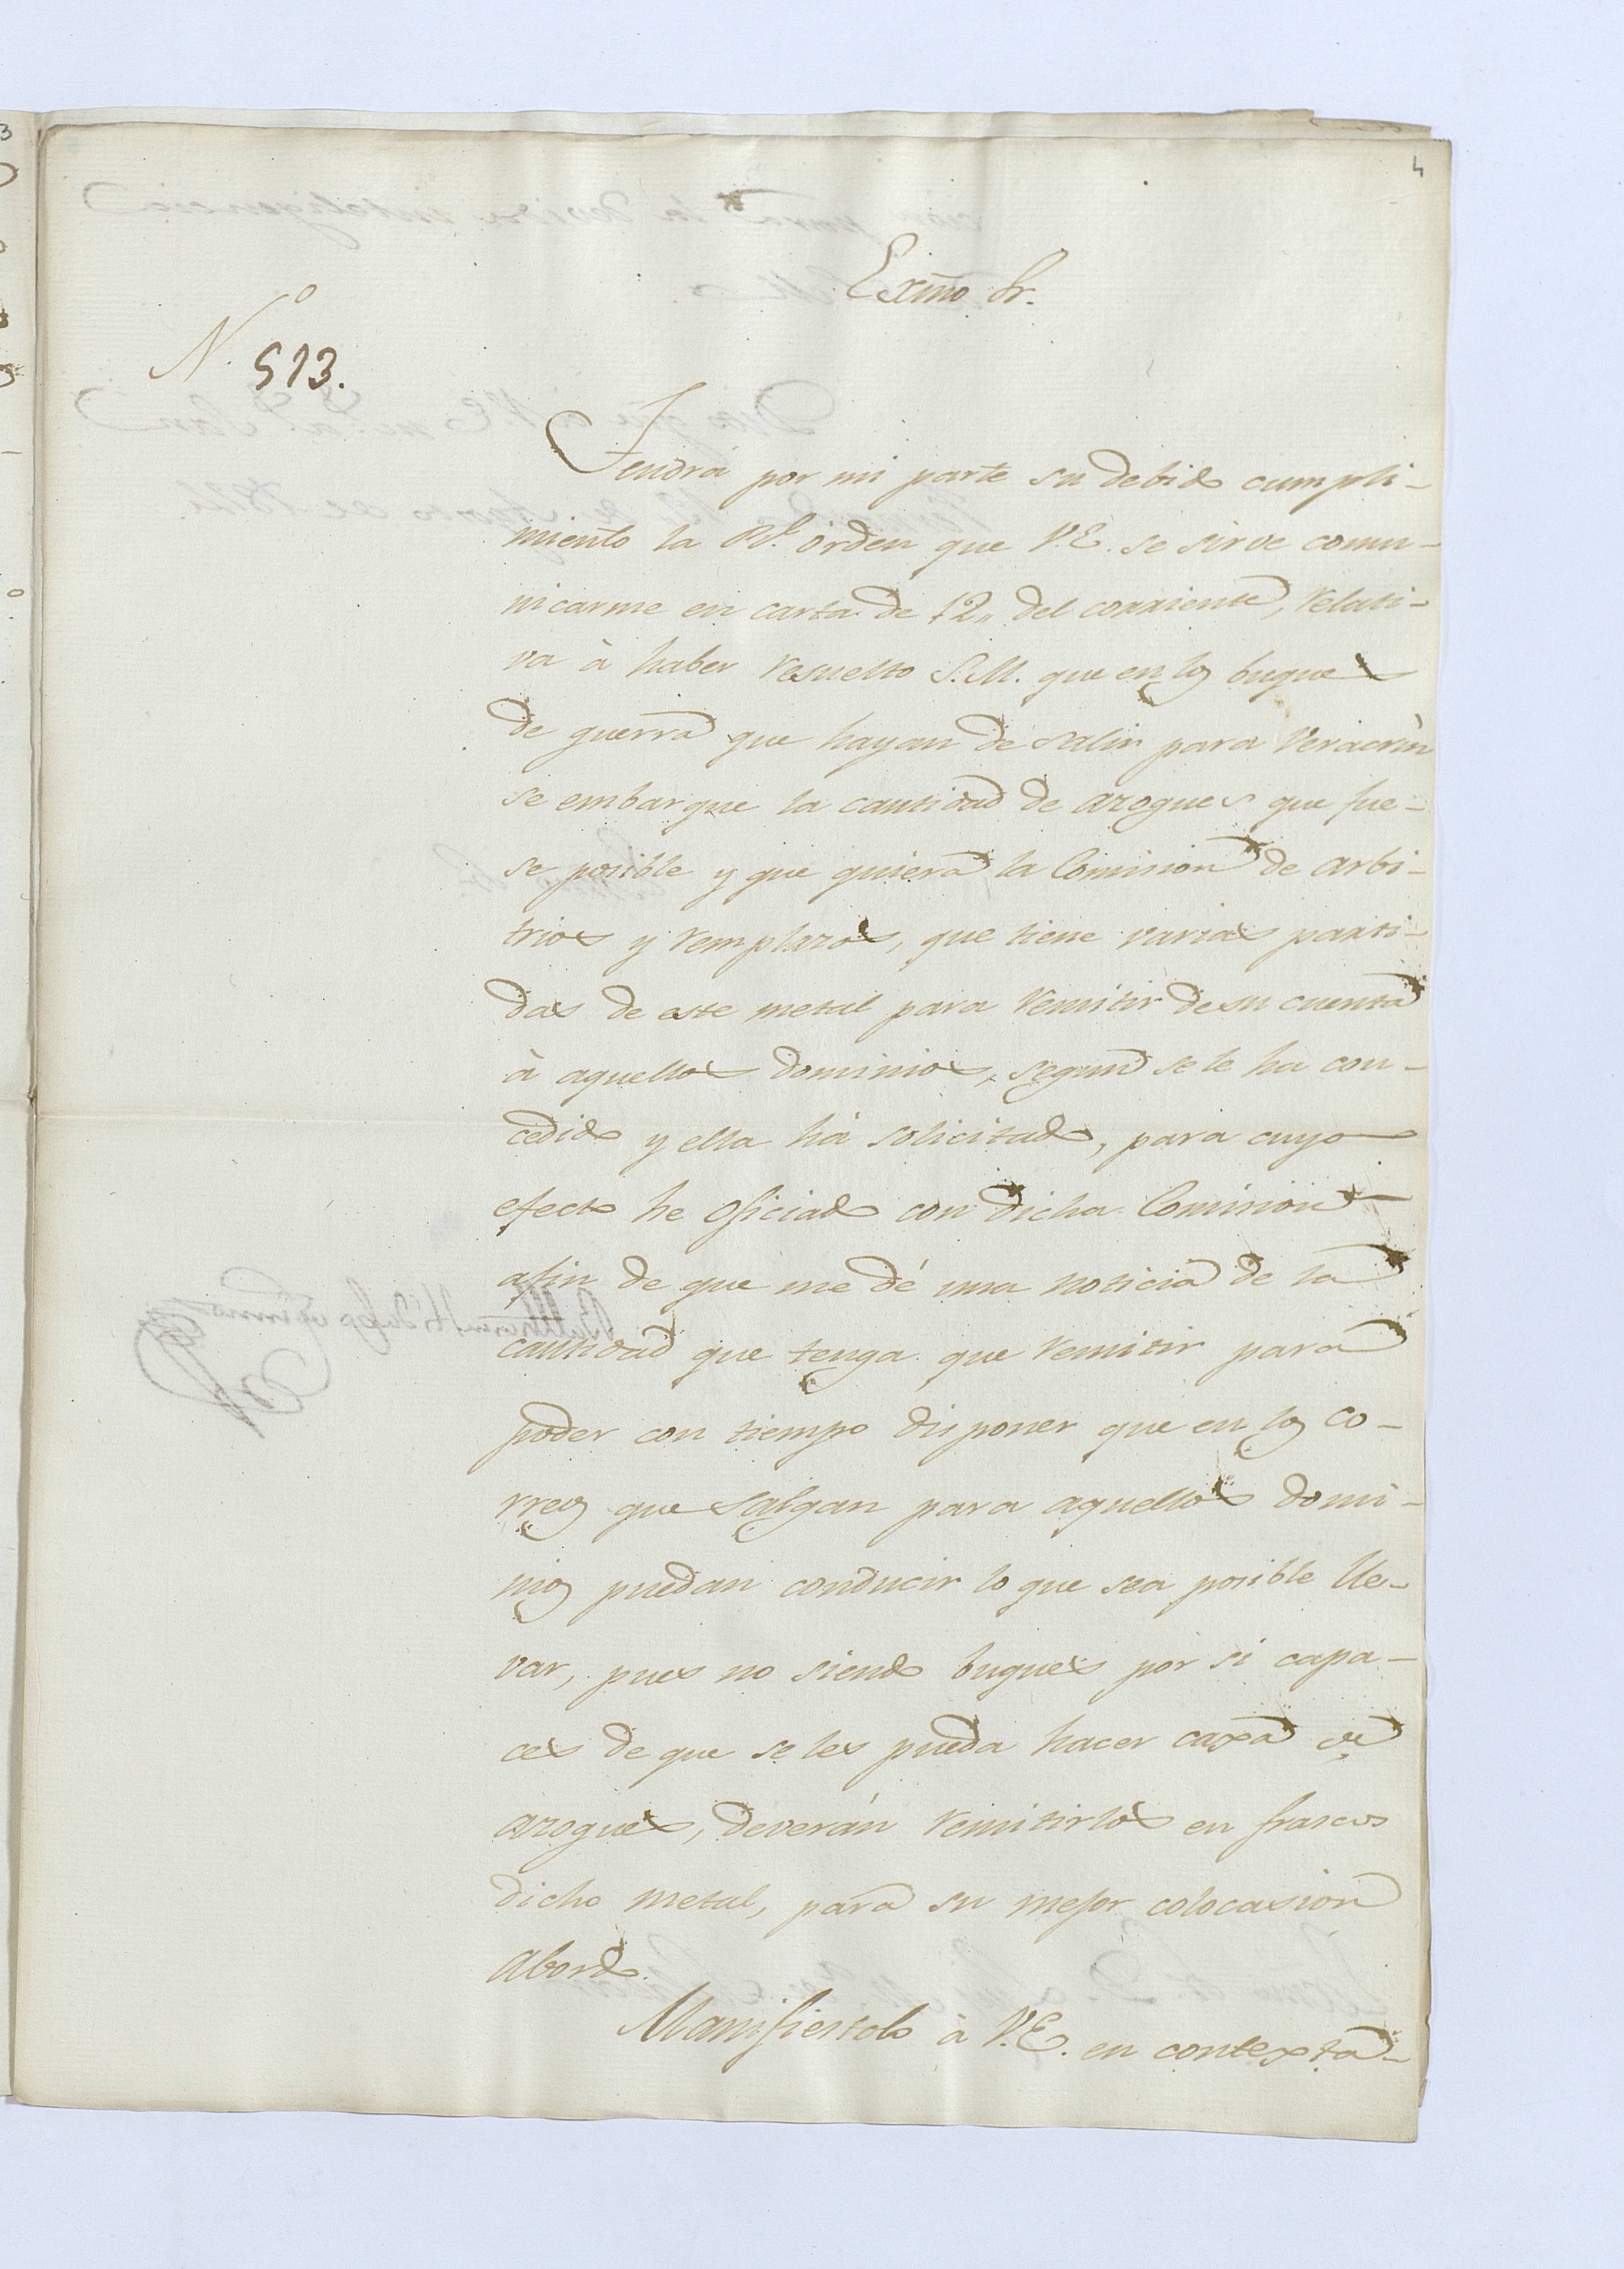 4
Exmo Sr.
N.º 513.
Tendrá por mi parte su debido cumpli-
miento la Rl. órden que V.E. se sirve comu-
nicarme en carta de 12,, del corriente, relati-
va à haber resuelto S.M. que en los buques
de guerra que hayan de salir para Veracruz
se embarque la cantidad de azogues que fue-
se posible y que quiera la Comision de arbi-
trios y remplazos, que tiene varias parti-
das de este metal para remitir de su cuenta
à aquellos dominios, segun se le ha con-
cedido y ella há solicitado, para cuyo
efecto he oficiado con dicha Comision
afin de que me dé una noticia de la
cantidad que tenga que remitir para
poder con tiempo disponer que en los co-
rreos que salgan para aquellos domi-
nios puedan conducir lo que sea posible lle-
var, pues no siendo buques por si capa-
ces de que se les pueda hacer caxa de
azogues, deverán remitirlos en frascos
dicho metal, para su mejor colocasion
abordo.
Manifiestolo à V.E. en contexta-